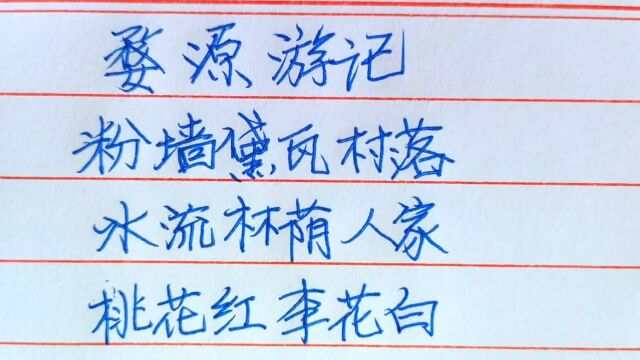 婺源游记
粉墙黛瓦村落
水流林荫人家
桃花红李花白